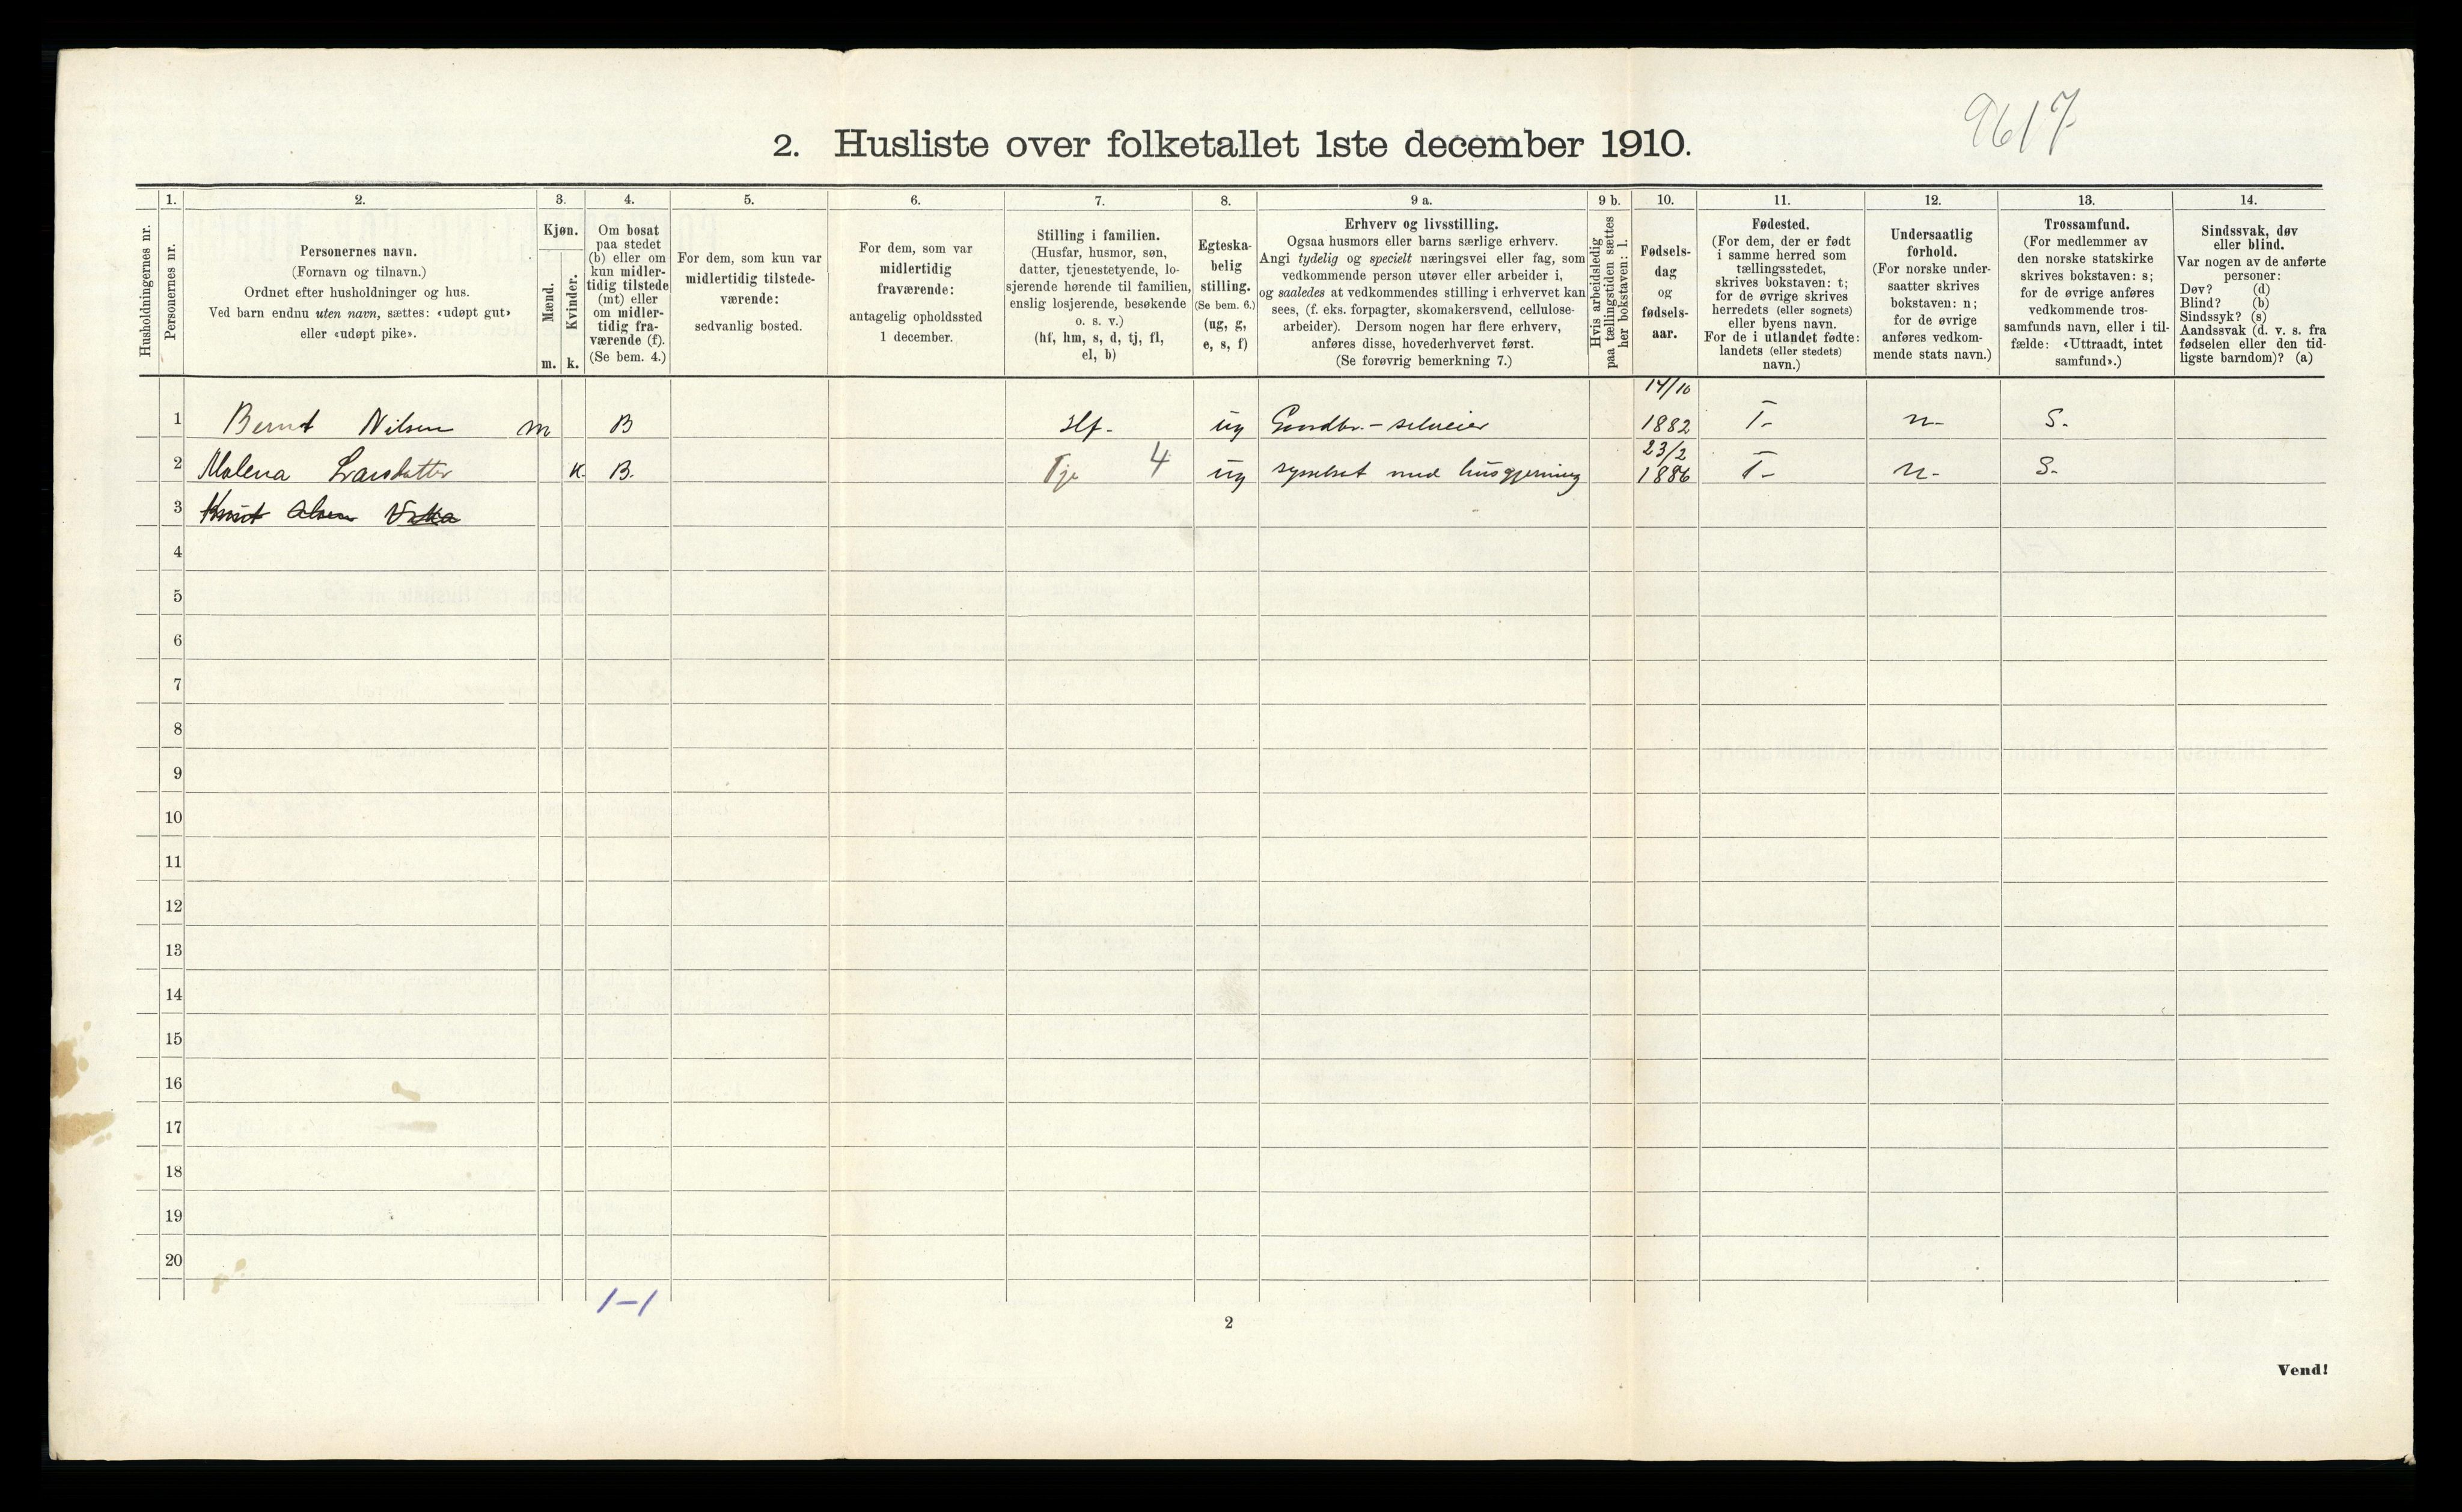 9617
2. Husliste over folketallet 1ste december 1910.
Husholdningernes nr.
1.
Personernes nr.
2.
Personernes navn.
(Fornavn og tilnavn.)
Ordnet efter husholdninger og hus.
Ved barn endnu uten navn, sættes: «udøpt gut»
eller «udøpt pike».
3.
Kjøn.
Mænd.
m.
Kvinder.
k.
4.
Om bosat
paa stedet
(b) eller om
kun midler-
tidig tilstede
(mt) eller
om midler-
tidig fra-
værende (f).
(Se bem. 4.)
5.
For dem, som kun var
midlertidig tilstede-
værende:
sedvanlig bosted.
6.
For dem, som var
midlertidig
fraværende:
antagelig opholdssted
1 december.
7.
Stilling i familien.
(Husfar, husmor, søn,
datter, tjenestetyende, lo-
sjerende hørende til familien,
enslig losjerende, besøkende
o. s. v.)
(hf, hm, s, d, tj, fl,
el, b)
8.
Egteska-
belig
stilling.
(Se bem. 6.)
(ug, g,
e, s, f)
9 a.
Erhverv og livsstilling.
Ogsaa husmors eller barns særlige erhverv.
Angi tydelig og specielt næringsvei eller fag, som
vedkommende person utøver eller arbeider i,
og saaledes at vedkommendes stilling i erhvervet kan
sees, (f. eks. forpagter, skomakersvend, cellulose-
arbeider). Dersom nogen har flere erhverv,
anføres disse, hovederhvervet først.
(Se forøvrig bemerkning 7.)
9 b.
Hvis arbeidsledig
paa tællingstiden sættes
her bokstaven: l.
10.
Fødsels-
dag
og
fødsels-
aar.
11.
Fødested.
(For dem, der er født
i samme herred som
tællingsstedet,
skrives bokstaven: t;
for de øvrige skrives
herredets (eller sognets)
eller byens navn.
For de i utlandet fødte:
landets (eller stedets)
navn.)
12.
Undersaatlig
forhold.
(For norske under-
saatter skrives
bokstaven: n;
for de øvrige
anføres vedkom-
mende stats navn.)
13.
Trossamfund.
(For medlemmer av
den norske statskirke
skrives bokstaven: s;
for de øvrige anføres
vedkommende tros-
samfunds navn, eller i til-
fælde: «Uttraadt, intet
samfund».)
14.
Sindssvak, døv
eller blind.
Var nogen av de anførte
personer:
Døv? (d)
Blind? (b)
Sindssyk? (s)
Aandssvak (d. v. s. fra
fødselen eller den tid-
ligste barndom)? (a)
14/10
1 Bernt Nilsen m B Hf- ug Gaardbr.- selveier 1882 T- n- S.
23/2
2 Malena Larsdatter K. B. Tje 4 ug sysselsat med husgjerning 1886 T- n- S-
3 Knut Olsen
4
5
6
7
8
9
10
11
12
13
14
15
16
17
18
19
20
1-1
2
Vend!